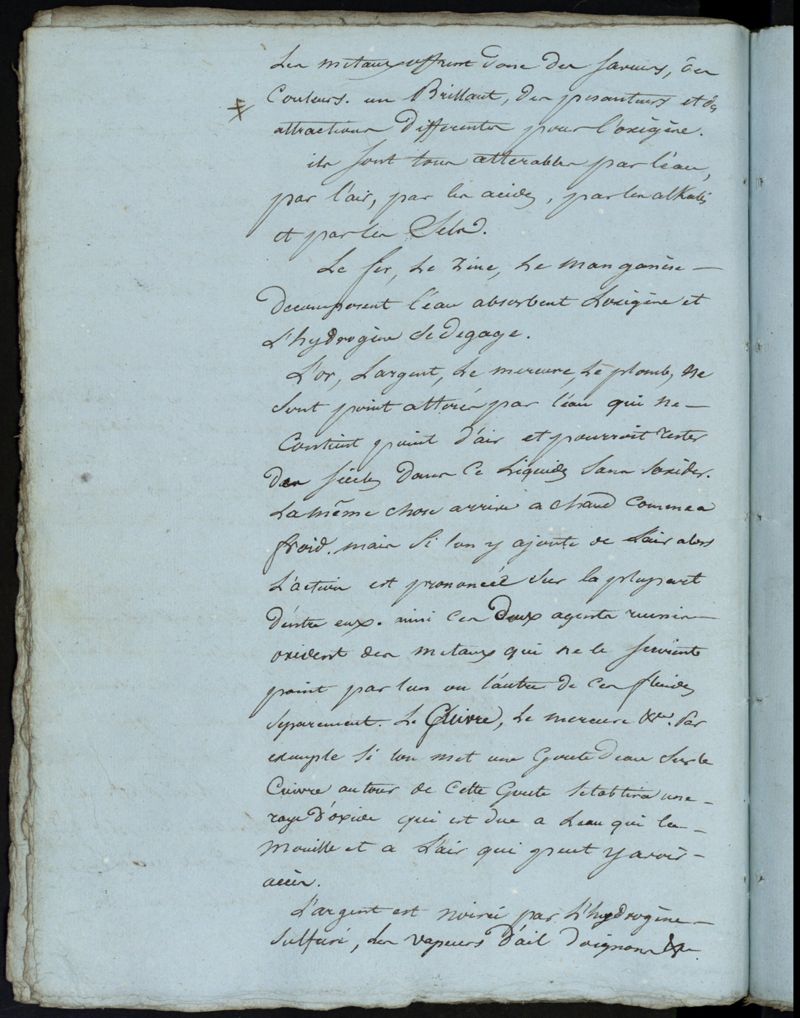 Les metaux offrent donc des saveurs, des
Couleurs. un Brillant, des pesanteurs et des
attractions Differentes pour l'oxigène.
ils sont tous alterables par l'eau,
par l'air, par les acides, par les alkalis
et par les Sels.
Le fer, Le Zinc, Le manganèse —
Decomposent l'eau absorbent L'oxigène et
L'hydrogène se Degage.
L'or, L'argent, Le mercure, Le plomb, ne
sont point alterés par l'eau qui ne —
Contient point d'air et pourroit rester
des siècles dans ce Liquide sans s'oxider.
La même chose arrive a chaud comme a
froid. mais si l'on y ajoute de L'air alors
L'action est prononcée sur la plupart
d'entre eux. ainsi ces Deux agents reunis —
oxident des metaux qui ne le seroient
point par l'un ou l'autre de ces fluides
separement. Le Cuivre, Le mercure &c. Par
exemple si l'on met une Goute d'eau sur le
Cuivre autour de cette Goute s'etablira une —
raye d'oxide qui est due a L'eau qui le —
mouille et a L'air qui peut y avoir —
accès.
L'argent est noirci par L'hydrogène —
sulfuré, Les vapeurs d'ail d'oignons &c